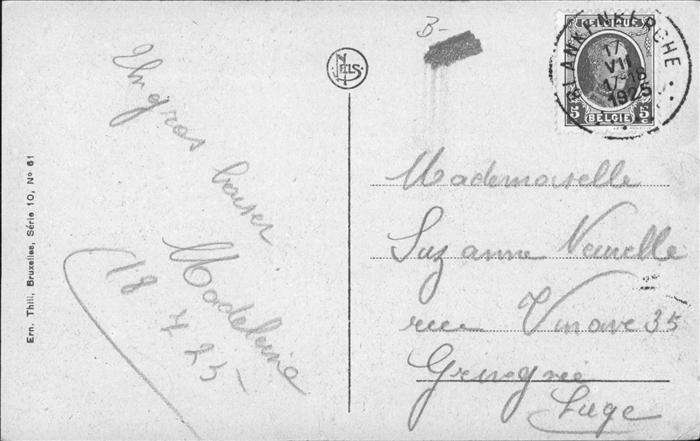 Ern. Thill, Bruxelles, Série 10, Nº 61
Un gros baiser
Madeleine
18 7 25
NELS
B-
BLANKENBERGHE
17
VII
17-18
1925
BELGIQUE
5 BELGIE 5
Mademoiselle
Suzanne
rue Vinave 35
Grivegnée
Liège